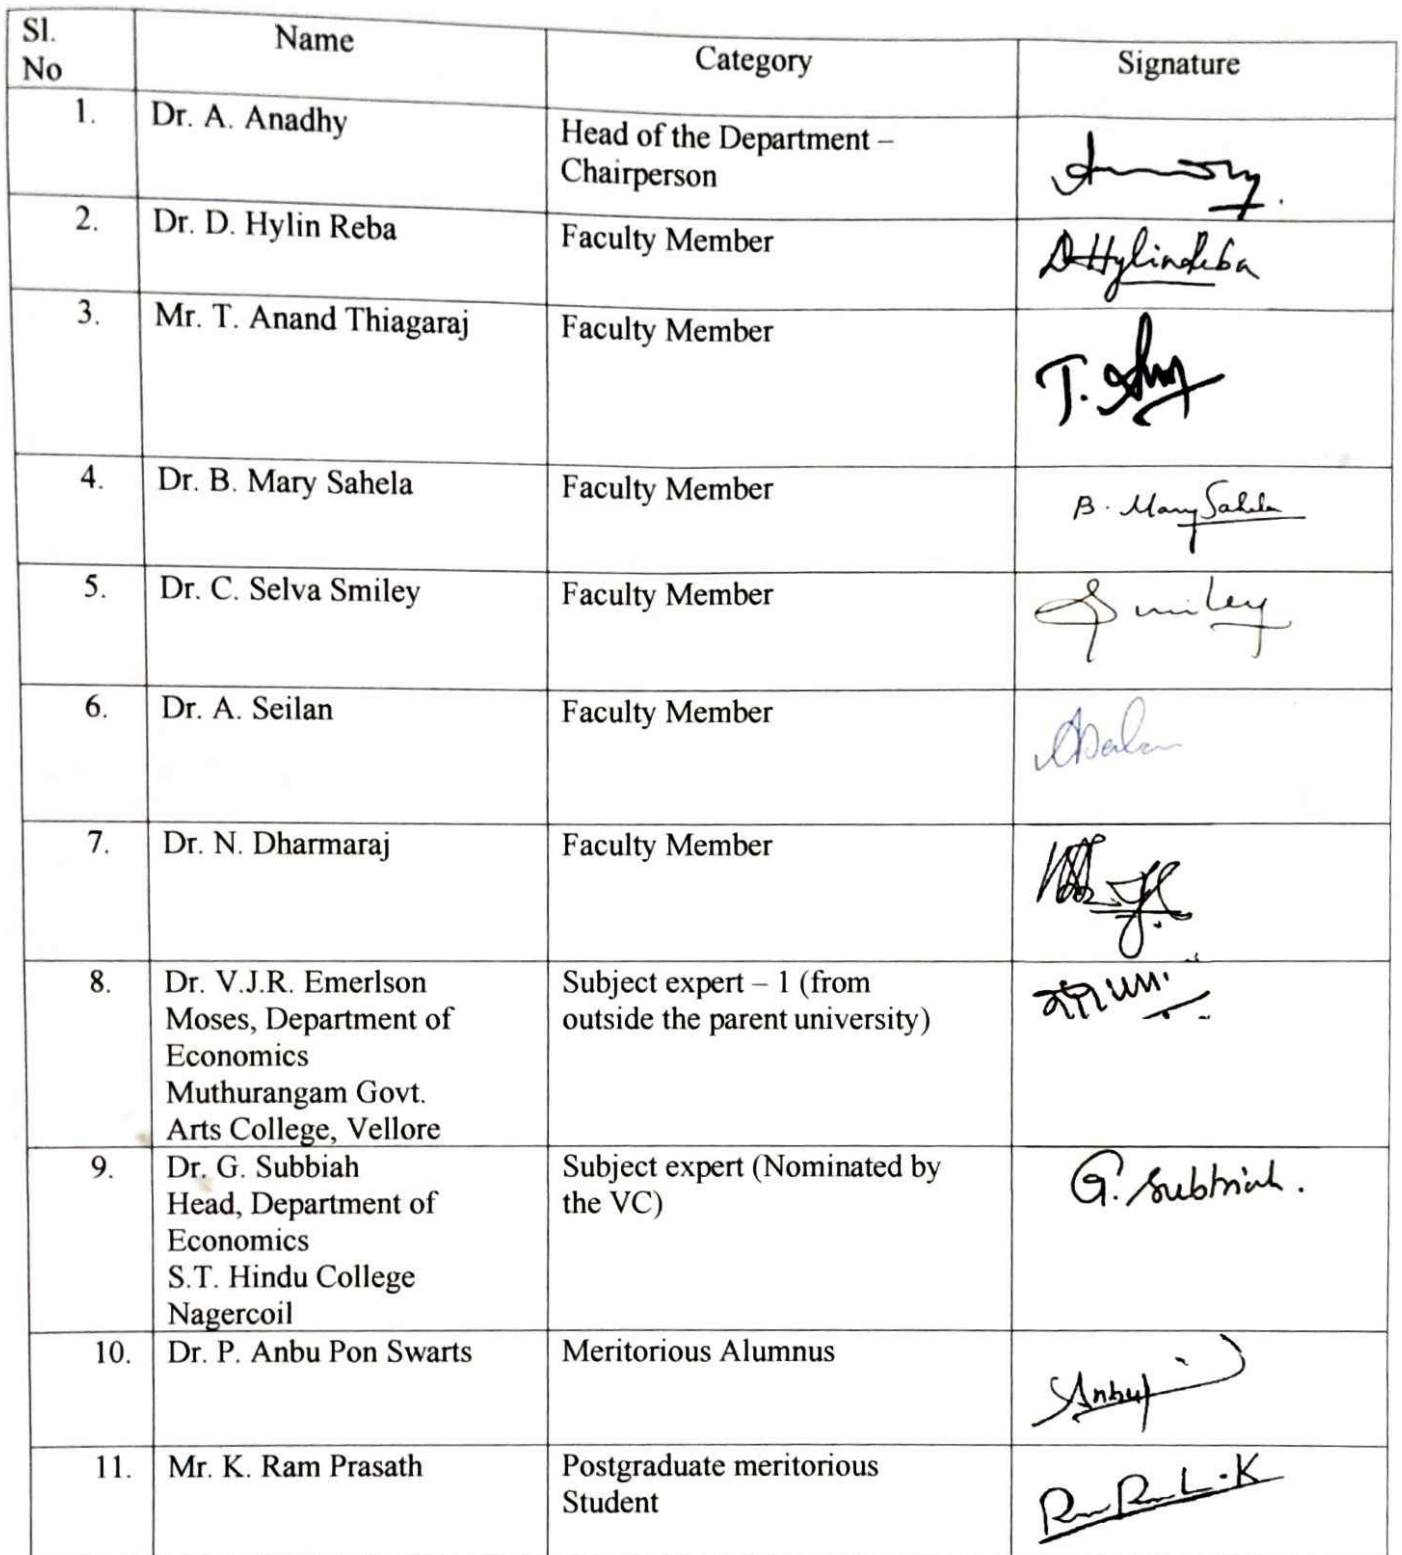 Sl.
No
Name
Category
Signature
1.
Dr. A. Anadhy
Head of the Department –
Chairperson
2.
Dr. D. Hylin Reba
Faculty Member
D Hylin Reba
3.
Mr. T. Anand Thiagaraj
Faculty Member
4.
Dr. B. Mary Sahela
Faculty Member
B. Mary Sahela
5.
Dr. C. Selva Smiley
Faculty Member
Smiley
6.
Dr. A. Seilan
Faculty Member
7.
Dr. N. Dharmaraj
Faculty Member
8.
Dr. V.J.R. Emerlson
Moses, Department of
Economics
Muthurangam Govt.
Arts College, Vellore
Subject expert – 1 (from
outside the parent university)
9.
Dr. G. Subbiah
Head, Department of
Economics
S.T. Hindu College
Nagercoil
Subject expert (Nominated by
the VC)
G. Subbiah.
10.
Dr. P. Anbu Pon Swarts
Meritorious Alumnus
11.
Mr. K. Ram Prasath
Postgraduate meritorious
Student